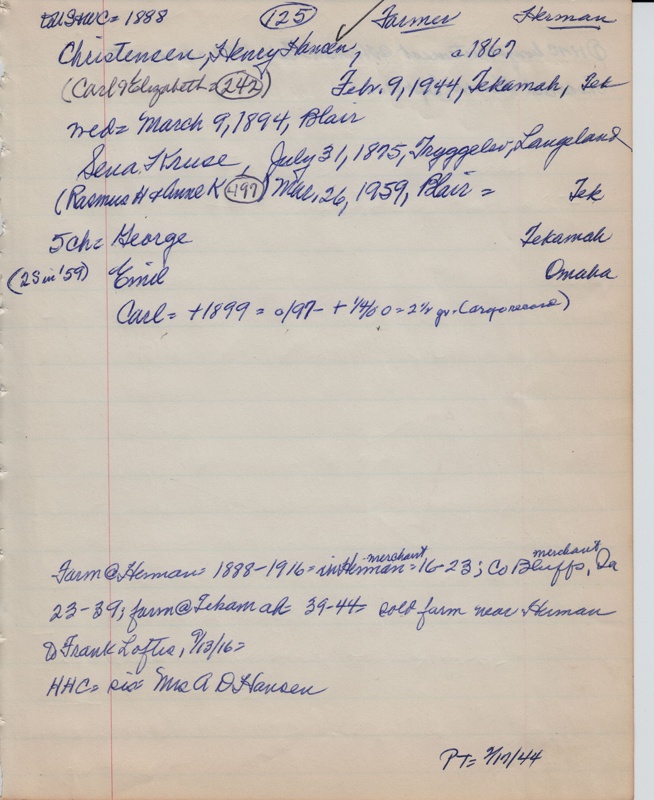 = 1888 (125) Farmer Herman
Christensen, Henry Hansen, a 1867
(Carl & Elizabeth = 242) Febr. 9, 1944, Tekamah, Tek
wed = March 9, 1894, Blair
Sena Kruse, July 31, 1875, Tryggelev, Langeland
(Rasmus H & Anne K 197) Mar. 26, 1959, Blair = Tek
5 ch = George Tekamah
(2 S in '59) Emil Omaha
Carl = +1899 = o/97 - + 1/4/00 = 2 1/2 yr.
Farm @ Herman = 1888-1916 = in Herman = merchant 16-23; Co Bluffs, merchant Ia
23-39; farm @ Tekamah 39-44 = sold farm near Herman
to Frank Loftis, 9/13/16 =
HHC = sis = Mrs A D Hansen
PT = 2/17/44